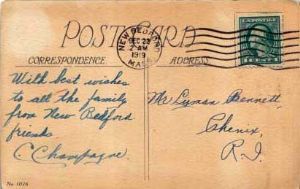 POST CARD
NEW BEDFORD
DEC 23
7 AM
1919
MASS.
CORRESPONDENCE
ADDRESS
With best wishes
to all the family
from New Bedford
friends
C Champagne.
Mr Lyman Bennett,
Phenix,
R.I.
No 1016